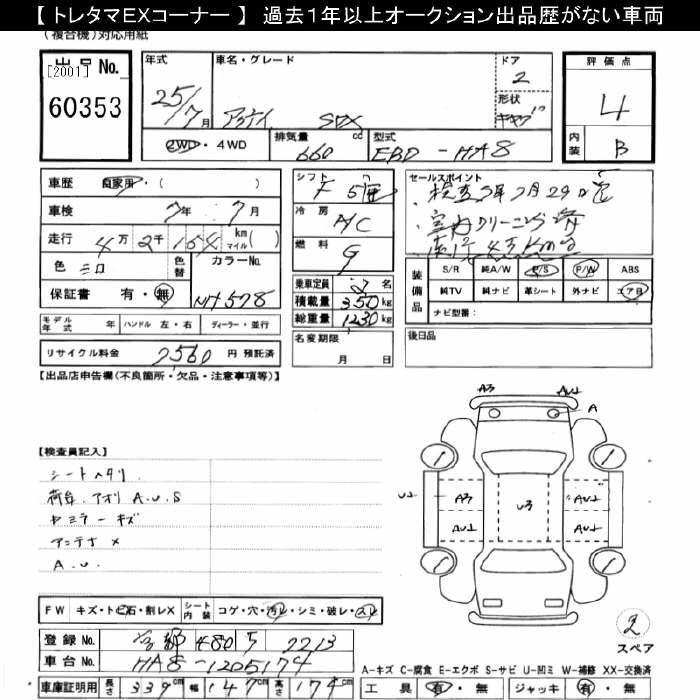 【 トレタマEXコーナー 】 過去1年以上オークション出品歴がない車両
(複合機)対応用紙
出品 No.
[2001]
60353
年式
25/7月
車名・グレード
アクティ SDX
ドア
2
形状
評価点
4
内装
B
2WD・4WD
排気量
660 cc
型式
EBD-HA8
車歴 自家用・( )
車検 7年 7月
走行 4万2千154 km マイル( )
色
色替
カラーNo.
NH578
保証書 有・無
シフト
F 5
冷房
A/C
燃料
G
乗車定員 2名
積載量 350 kg
総重量 1230 kg
名変期限
月 日
セールスポイント
・室内クリーニング済
装備品
S/R 純A/W P/S P/W ABS
純TV 純ナビ 革シート 外ナビ エアB
ナビ型番:
後日品
モデル年式 年 ハンドル 左・右 ディーラー・並行
リサイクル料金 7560 円 預託済
【出品店申告欄(不良箇所・欠品・注意事項等)】
【検査員記入】
シートヘタリ
荷台、アオリ A.U.S
ドアミラーキズ
アンテナ×
A.U.
A3 AU1
A
U1 A3 U3 AU1 AU1
AU1 AU1
2
スペア
FW キズ・トビ石・割レX シート内装 コゲ・穴・汚レ・シミ・破レ・スレ
登録 No. 京都 480 5 2213
車台 No. HA8-1205174
車庫証明用 長さ 339cm 幅 147cm 高さ 174cm
A-キズ C-腐食 E-エクボ S-サビ U-凹ミ W-補修 XX-交換済
工具 有・無 ジャッキ 有・無